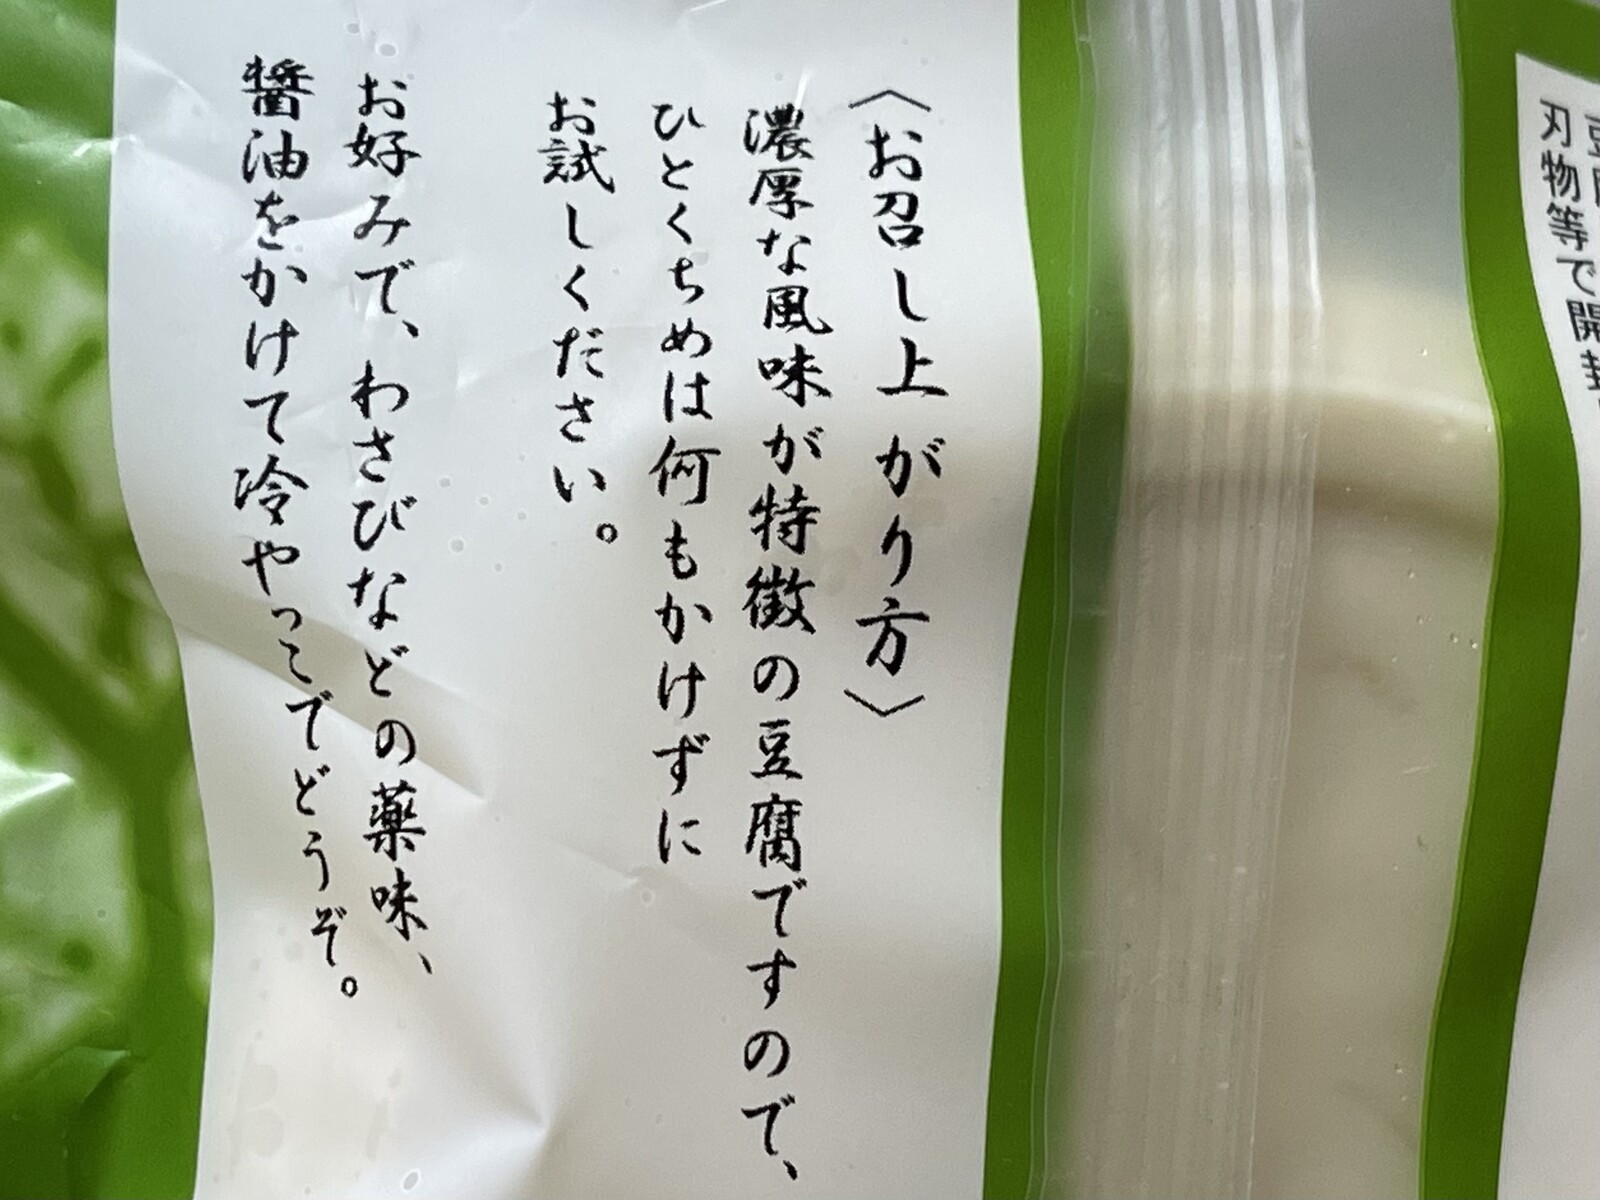 刃物等で開封
〈お召し上がり方〉
濃厚な風味が特徴の豆腐ですので、
ひとくちめは何もかけずに
お試しください。
お好みで、わさびなどの薬味、
醤油をかけて冷やっこでどうぞ。